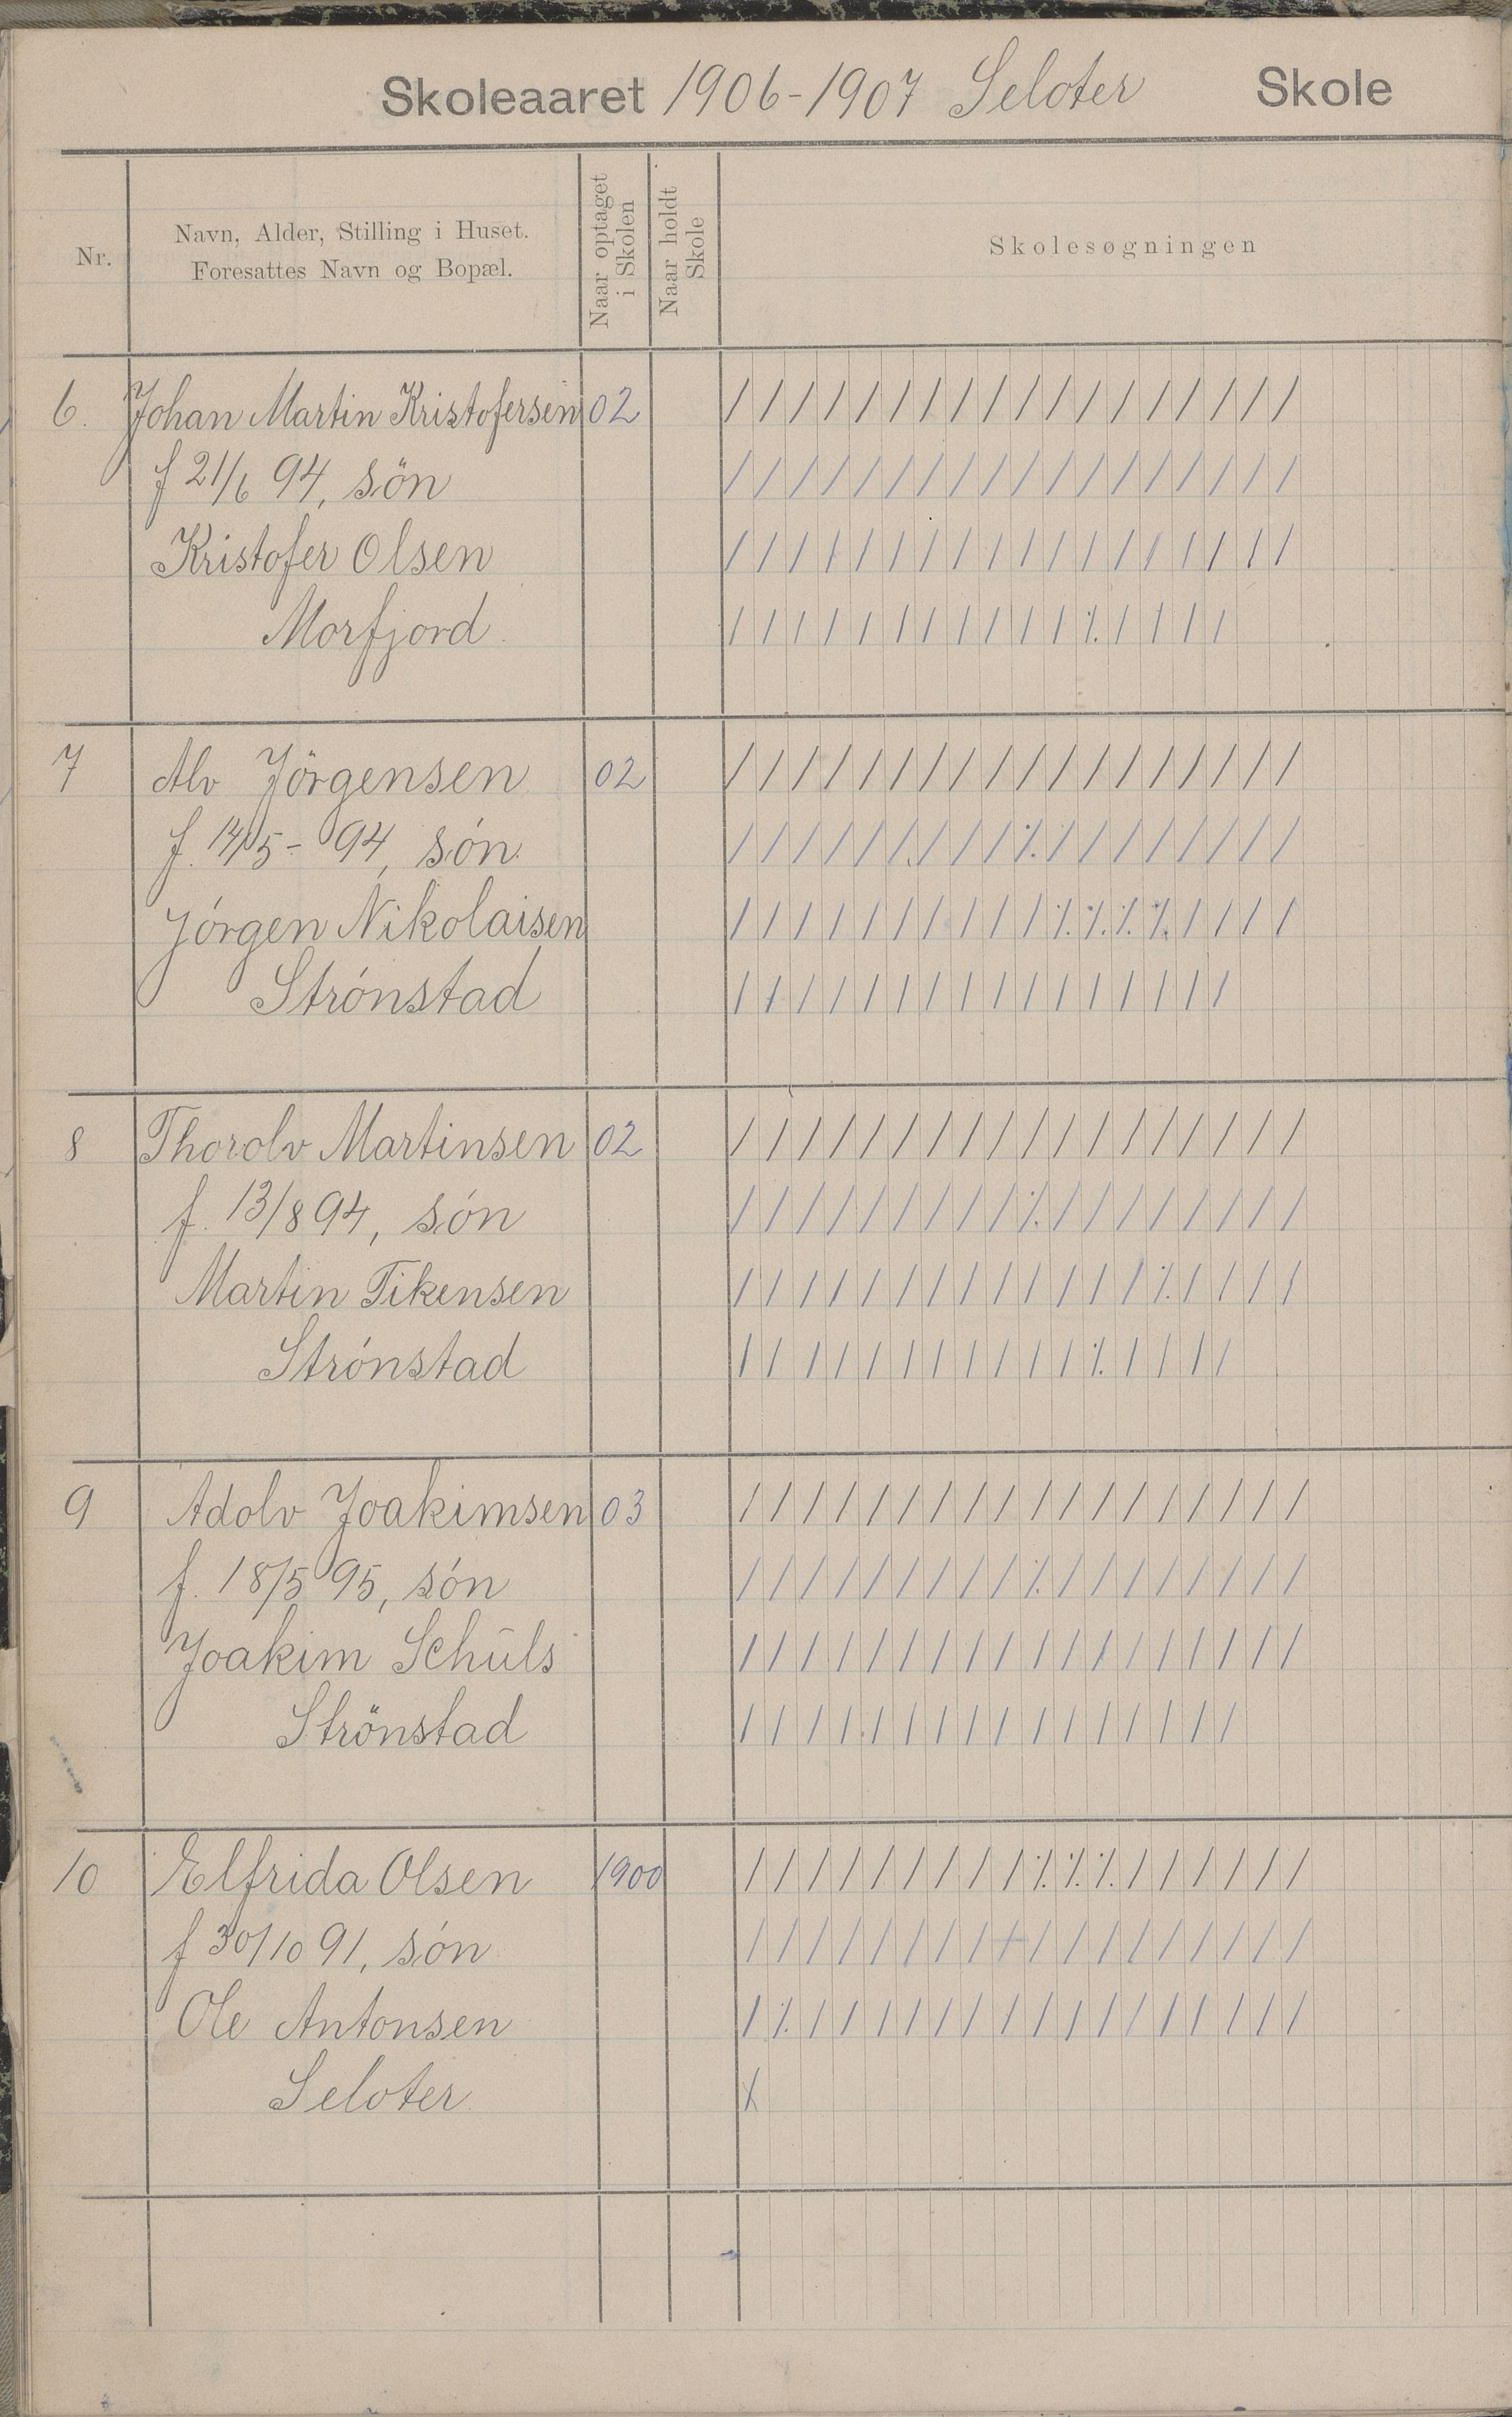 Skoleaaret 1906-1907 Seloter Skole
Nr.
Navn, Alder, Stilling i Huset.
Foresattes Navn og Bopæl.
Naar optaget
i Skolen
Naar holdt
Skole
Skolesøgningen
6. Johan Martin Kristofersen 02 / / / / / / / / / / / / / / / / / /
f 21/6 94, sön / / / / / / / / / / / / / / / / / /
Kristofer Olsen / / / / / / / / / / / / / / / / / /
Morfjord / / / / / / / / / / / ⁒ / / / /
7 Alv Jörgensen 02 / / / / / / / / / / / / / / / / / /
f. 14/5 - 94, són / / / / / / / / / ⁒ / / / / / / / /
Jórgen Nikolaisen / / / / / / / / / / ⁒ ⁒ ⁒ ⁒ / / / /
Strónstad / / / / / / / / / / / / / / / /
8 Thorolv Martinsen 02 / / / / / / / / / / / / / / / / / /
f. 13/8 94, són / / / / / / / / / ⁒ / / / / / / / /
Martin Tikensen / / / / / / / / / / / / / ⁒ / / / /
Strónstad / / / / / / / / / / / ⁒ / / / /
9 Adolv Joakimsen 03 / / / / / / / / / / / / / / / / / /
f. 18/5 95, són / / / / / / / / / ⁒ / / / / / / / /
Joakim Schuls / / / / / / / / / / / / / / / / / /
Strönstad / / / / / / / / / / / / / / / /
10 Elfrida Olsen 1900 / / / / / / / / / ⁒ ⁒ ⁒ / / / / / /
f 30/10 91, són / / / / / / / / / / / / / / / / / /
Ole Antonsen / ⁒ / / / / / / / / / / / / / / / /
Seloter X